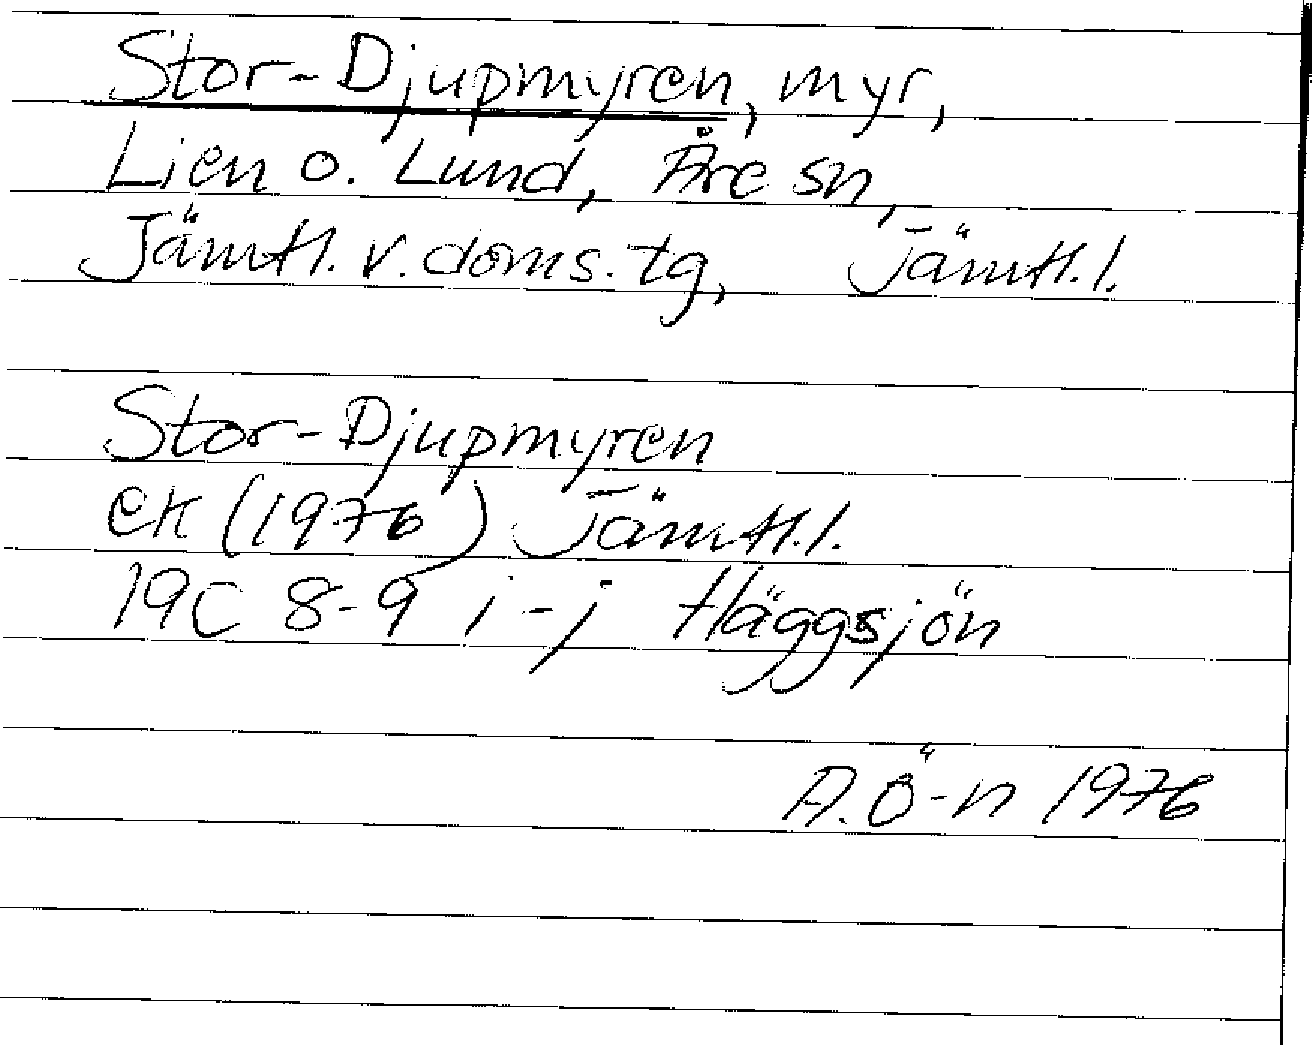 Stor-Djupmyren, myr,
Lien o. Lund, Åre sn,
Jämtl. v. doms. tg, Jämtl. l.
Stor-Djupmyren
ek (1976) Jämtl. l.
19C 8-9 i-j Häggsjön
A. Ö-n 1976